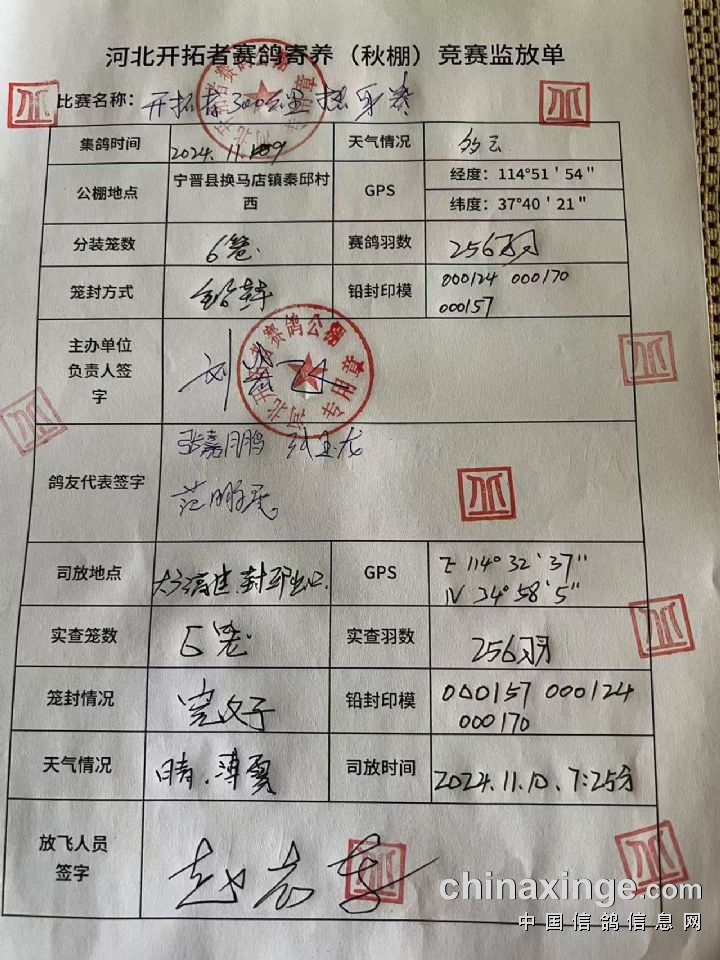 河北开拓者赛鸽寄养（秋棚）竞赛监放单
比赛名称：开拓者300公里热身赛
集鸽时间 2024.11.09 天气情况 多云
公棚地点 宁晋县换马店镇秦邱村西 GPS 经度：114°51'54"
纬度：37°40'21"
分装笼数 6笼. 赛鸽羽数 256羽
笼封方式 铅封 铅封印模 000124 000170
000157
主办单位
负责人签
字
鸽友代表签字 张嘉鹏
司放地点 GPS E 114°32'37"
N 34°58'5"
实查笼数 6笼. 实查羽数 256羽
笼封情况 完好 铅封印模 000157 000124
000170
天气情况 晴.薄雾 司放时间 2024.11.10.7:25分
放飞人员
签字
chinaxinge.com
中国信鸽信息网